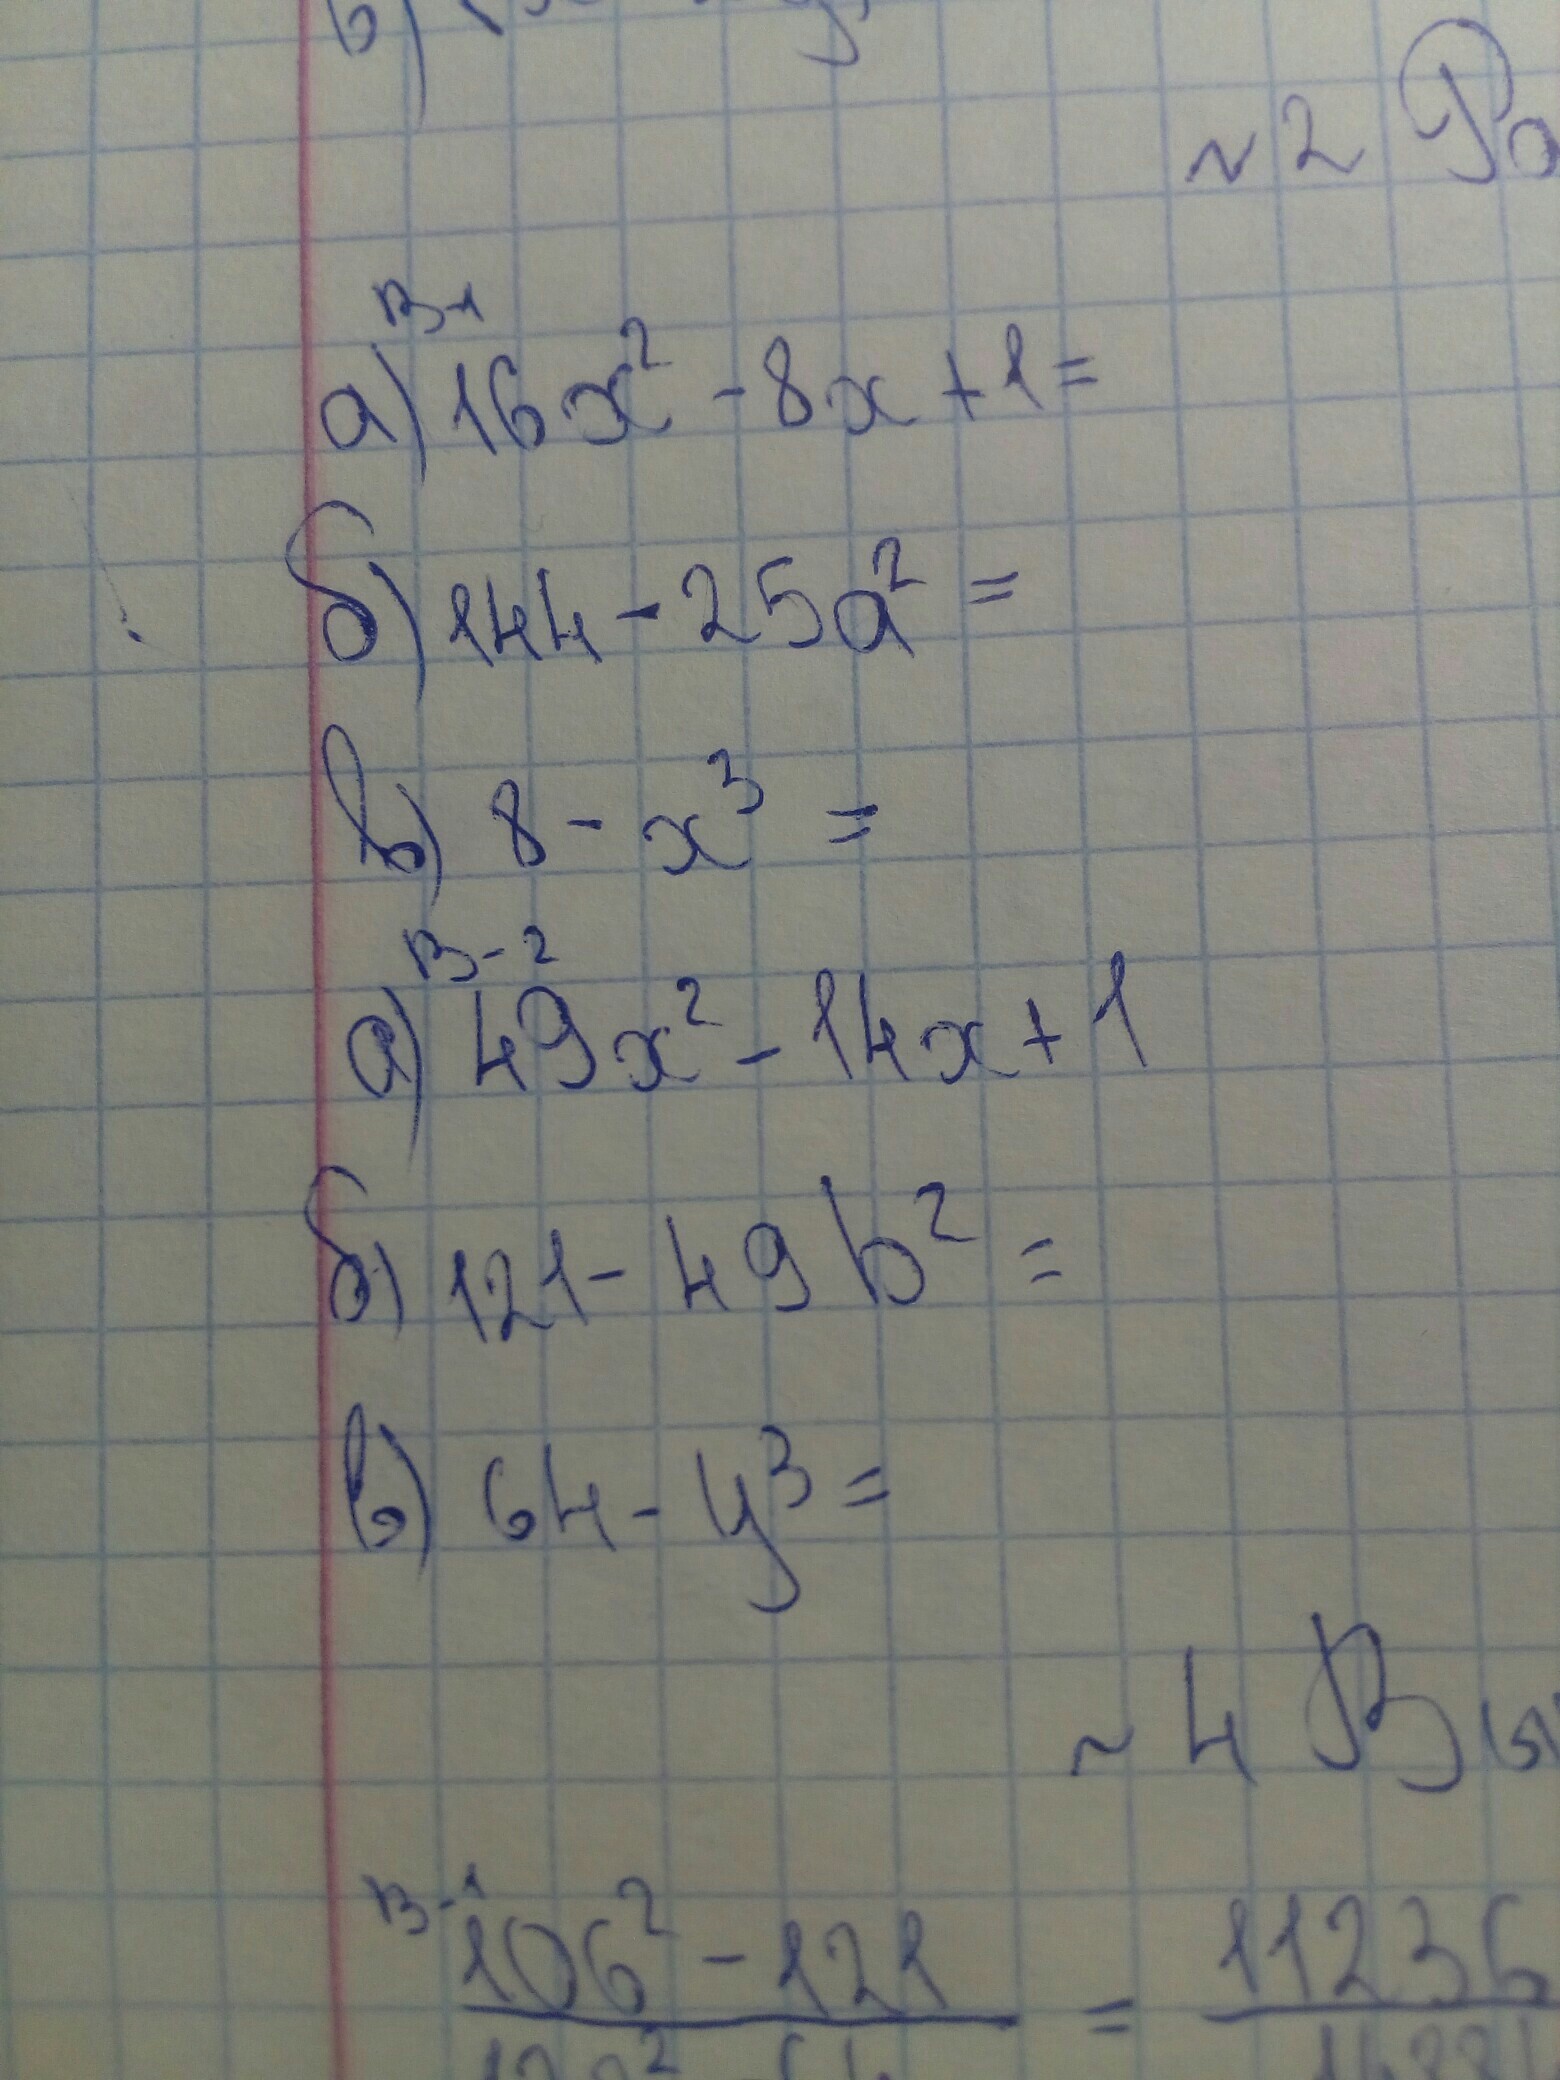 в)
~ 2
В-1
а) 16x² - 8x + 1 =
б) 144 - 25a² =
в) 8 - x³ =
В-2
а) 49x² - 14x + 1
б) 121 - 49b² =
в) 64 - y³ =
~ 4
В-1
106² - 121 = 11236